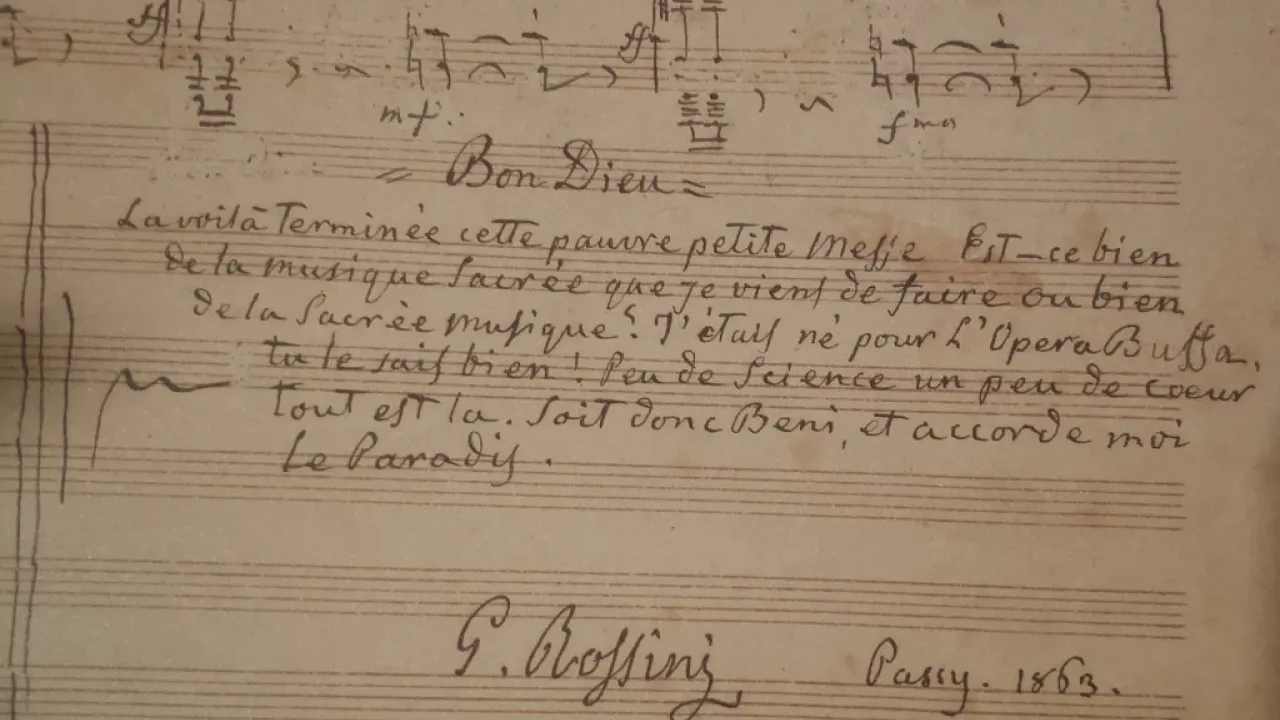 ff
ff
mf.
fmo
= Bon Dieu =
La voilà Terminée cette pauvre petite Messe Est-ce bien
de la musique Sacrée que je viens de faire ou bien
de la Sacrée musique? J'étais né pour L'Opera Buffa,
tu le sais bien! Peu de Science un peu de coeur
tout est la. Soit donc Beni, et accorde moi
Le Paradis.
G. Rossini
Passy. 1863.